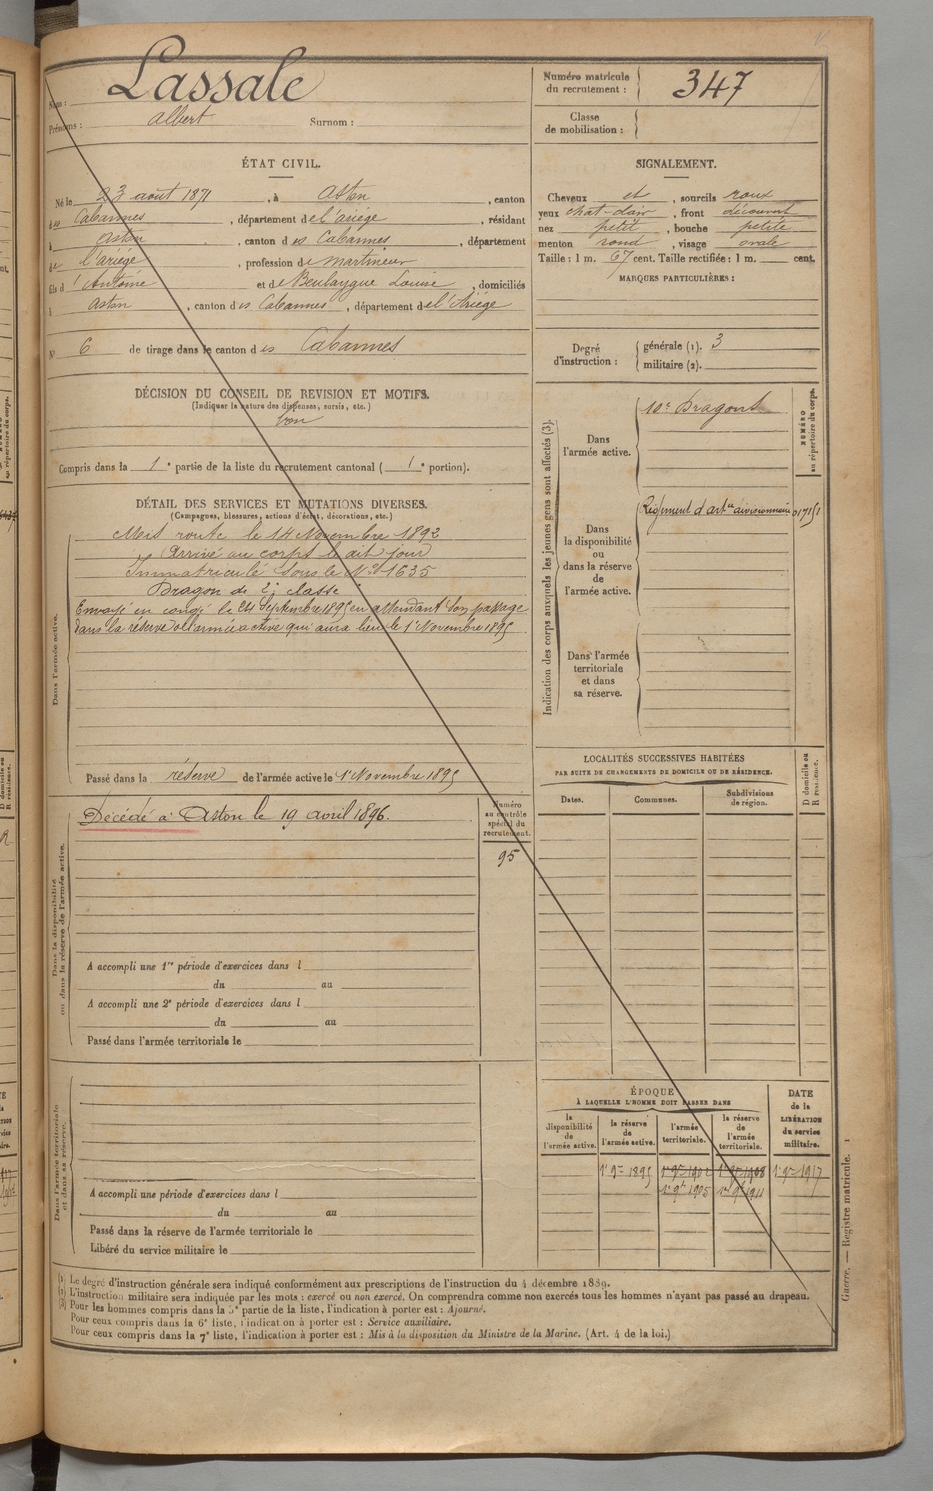 Nom : Lassale
Prénoms : Albert Surnom :
Numéro matricule du recrutement : 347
Classe de mobilisation :
ÉTAT CIVIL.
Né le 23 août 1871, à Aston, canton
des Cabannes, département de l'ariège, résidant
à Aston, canton des Cabannes, département
de l'ariége, profession de martineur
fils d'Antoine et de Beulaygue Louise, domiciliés
à Aston, canton des Cabannes, département de l'Ariège
N° 6 de tirage dans le canton des Cabannes
SIGNALEMENT.
Cheveux et, sourcils roux
yeux chat-clair, front découvert
nez petit, bouche petite
menton rond, visage ovale
Taille : 1 m. 67 cent. Taille rectifiée : 1 m. cent.
MARQUES PARTICULIÈRES :
Degré d'instruction :
générale (1). 3
militaire (2).
DÉCISION DU CONSEIL DE REVISION ET MOTIFS.
(Indiquer la nature des dispenses, sursis, etc.)
bon
Compris dans la 1e partie de la liste du recrutement cantonal ( 1e portion).
DÉTAIL DES SERVICES ET MUTATIONS DIVERSES.
(Campagnes, blessures, actions d'éclat, décorations, etc.)
Dans l'armée active.
Mis route le 14 Novembre 1892
Arrivé au corps le dit jour
Immatriculé sous le N° 1635
Dragon de 2e classe
Envoyé en congé le 24 Septembre 1895 en attendant son passage
dans la réserve de l'armée active qui aura lieu le 1er Novembre 1895
Passé dans la réserve de l'armée active le 1er Novembre 1895
Indication des corps auxquels les jeunes gens sont affectés (3).
NUMÉRO au répertoire du corps.
Dans l'armée active.
10e Dragons
Dans la disponibilité ou dans la réserve de l'armée active.
Régiment d'artie divisionnaire
Dans l'armée territoriale et dans sa réserve.
Dans la disponibilité ou dans la réserve de l'armée active.
Décédé à Aston le 19 avril 1896.
Numéro au contrôle spécial du recrutement.
95
A accompli une 1re période d'exercices dans l
du au
A accompli une 2e période d'exercices dans l
du au
Passé dans l'armée territoriale le
LOCALITÉS SUCCESSIVES HABITÉES
PAR SUITE DE CHANGEMENTS DE DOMICILE OU DE RÉSIDENCE.
Dates. Communes. Subdivisions de région. D domicile ou R résidence.
Dans l'armée territoriale et dans sa réserve.
A accompli une période d'exercices dans l
du au
Passé dans la réserve de l'armée territoriale le
Libéré du service militaire le
ÉPOQUE
À LAQUELLE L'HOMME DOIT PASSER DANS
la disponibilité de l'armée active. la réserve de l'armée active. l'armée territoriale. la réserve de l'armée territoriale.
DATE de la LIBÉRATION du service militaire.
1er 9bre 1895 1er 9bre 1902 1er 9bre 1908 1er 9bre 1917
1er 9bre 1905 1er 9bre 1911
(1) Le degré d'instruction générale sera indiqué conformément aux prescriptions de l'instruction du 4 décembre 1889.
(2) L'instruction militaire sera indiquée par les mots : exercé ou non exercé. On comprendra comme non exercés tous les hommes n'ayant pas passé au drapeau.
(3) Pour les hommes compris dans la 5e partie de la liste, l'indication à porter est : Ajourné.
Pour ceux compris dans la 6e liste, l'indication à porter est : Service auxiliaire.
Pour ceux compris dans la 7e liste, l'indication à porter est : Mis à la disposition du Ministre de la Marine. (Art. 4 de la loi.)
Guerre. — Registre matricule. 1